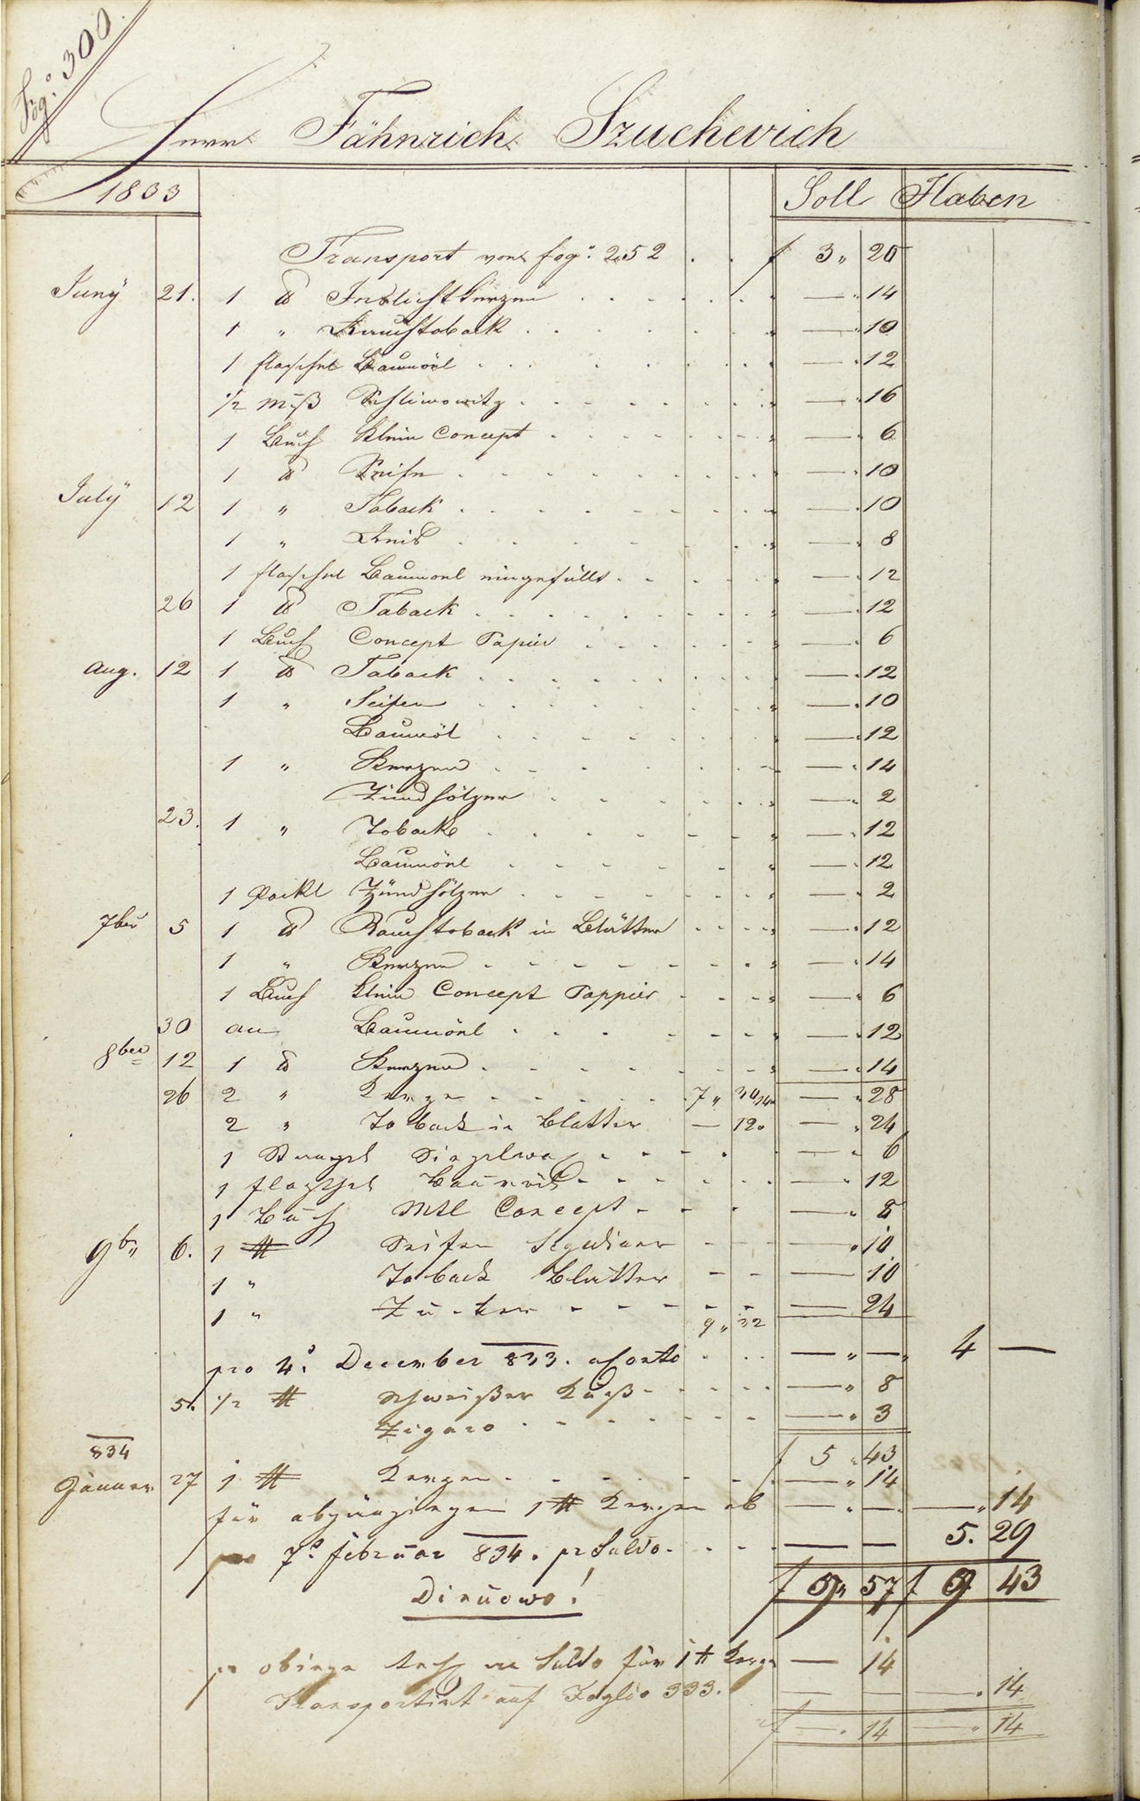 Fog: 300.
Herr Fähnrich Szuchevich
1833 Soll Haben
Transport von fog: 252 . . f 3 „ 20
Juny 21. 1 ℔ Inslichtkerzen — „ 14
1 „ Rauchtoback — „ 10
1 flaschel Baumöl — „ 12
1/2 Mß Schliwowitz — „ 16
1 Buch klein Concept — „ 6
1 ℔ Seife — „ 10
July 12 1 „ Toback — „ 10
1 „ Reis — „ 8
1 flaschel Baumoel eingefüllt — „ 12
26 1 ℔ Taback — „ 12
1 Buch Concept Papier — „ 6
Aug. 12 1 ℔ Taback — „ 12
1 „ Seifen — „ 10
Baumöl — „ 12
1 „ Kerzen — „ 14
Zündhölzer — „ 2
23. 1 „ Toback — „ 12
Baumöhl — „ 12
1 Packl Zündhölzer — „ 2
7ber 5 1 ℔ Rauchtoback in Blätter — „ 12
1 „ Kerzen — „ 14
1 Buch klein Concept Pappier — „ 6
30 an Baumöhl — „ 12
8ber 12 1 ℔ Kerzen — „ 14
26 2 „ Kerzen 7 „ 30 14 — „ 28
2 „ Toback in Blatter — 12 — „ 24
1 Stangel Siegelwax — „ 6
1 flaschel Baumöhl — „ 12
1 Buch Mtl Concept — „ 8
9b„ 6. 1 ℔ Seifen — „ 10
1 „ Toback Blätter — 10
1 „ Zucker — 24
9 „ 32
pro 4: December 833. a Conto — „ — 4 —
5. 1/2 ℔ Schweitzer Käß — „ 8
Zigaro — „ 3
f 5 „ 43
834
Jänner 27 1 ℔ Kerzen — „ 14
für abgängigen 1 ℔ Kerzen ab — „ — — „ 14
pro 7: februar 834. pr Saldo — — 5. 29
f 9 „ 57 f 9 43
pr obige Saldo für 1 ℔ Kerzen — 14
Transportirt auf Foglio 333. — — . 14
f — . 14 — „ 14